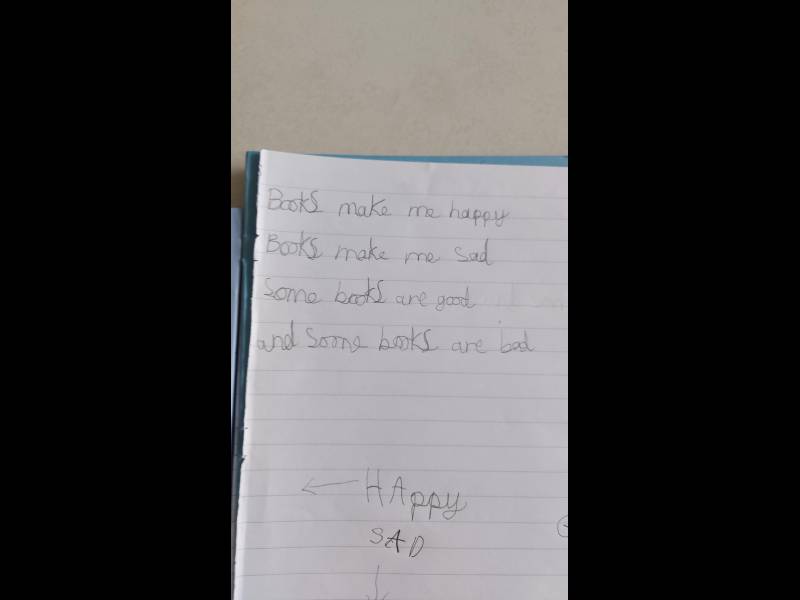 Books make me happy
Books make me sad
Some books are good
and some books are bad
HAppy
SAD